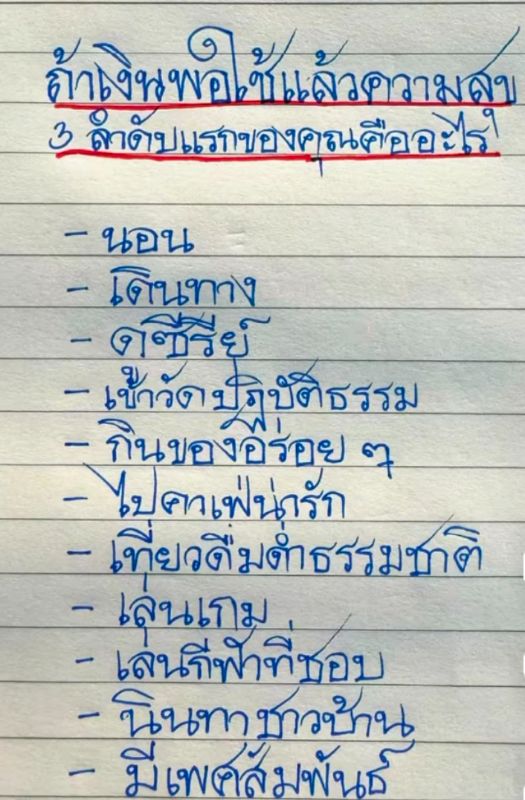 ถ้าเงินพอใช้แล้วความสุข
3 ลำดับแรกของคุณคืออะไร
- นอน
- เดินทาง
- ดูซีรีย์
- เข้าวัดปฏิบัติธรรม
- กินของอร่อย ๆ
- ไปคาเฟ่น่ารัก
- เที่ยวดื่มด่ำธรรมชาติ
- เล่นเกม
- เล่นกีฬาที่ชอบ
- นินทาชาวบ้าน
- มีเพศสัมพันธ์